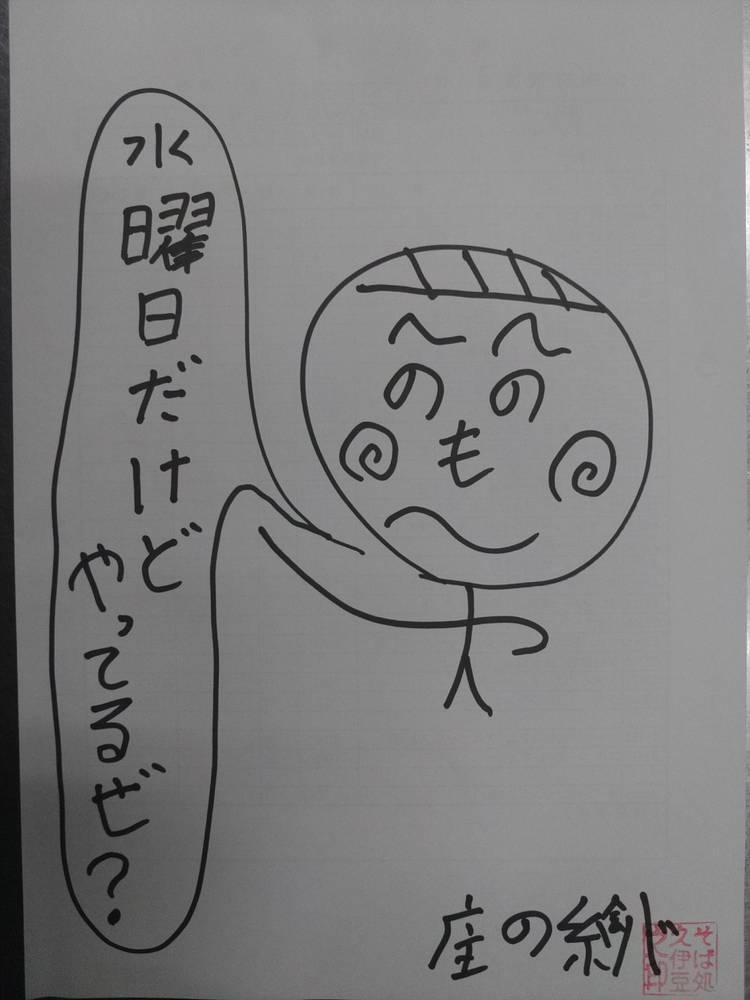 水曜日だけど
やってるぜ?
へへ
のの
も
座の
そば処
久伊豆